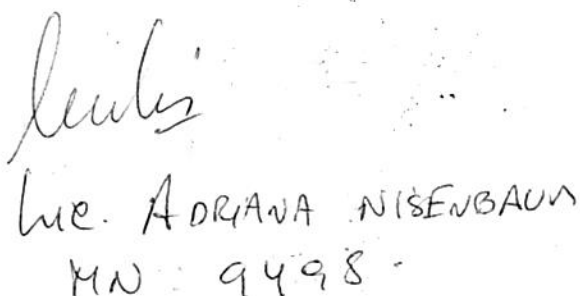 Lic. ADRIANA NISENBAUM
MN : 9498.